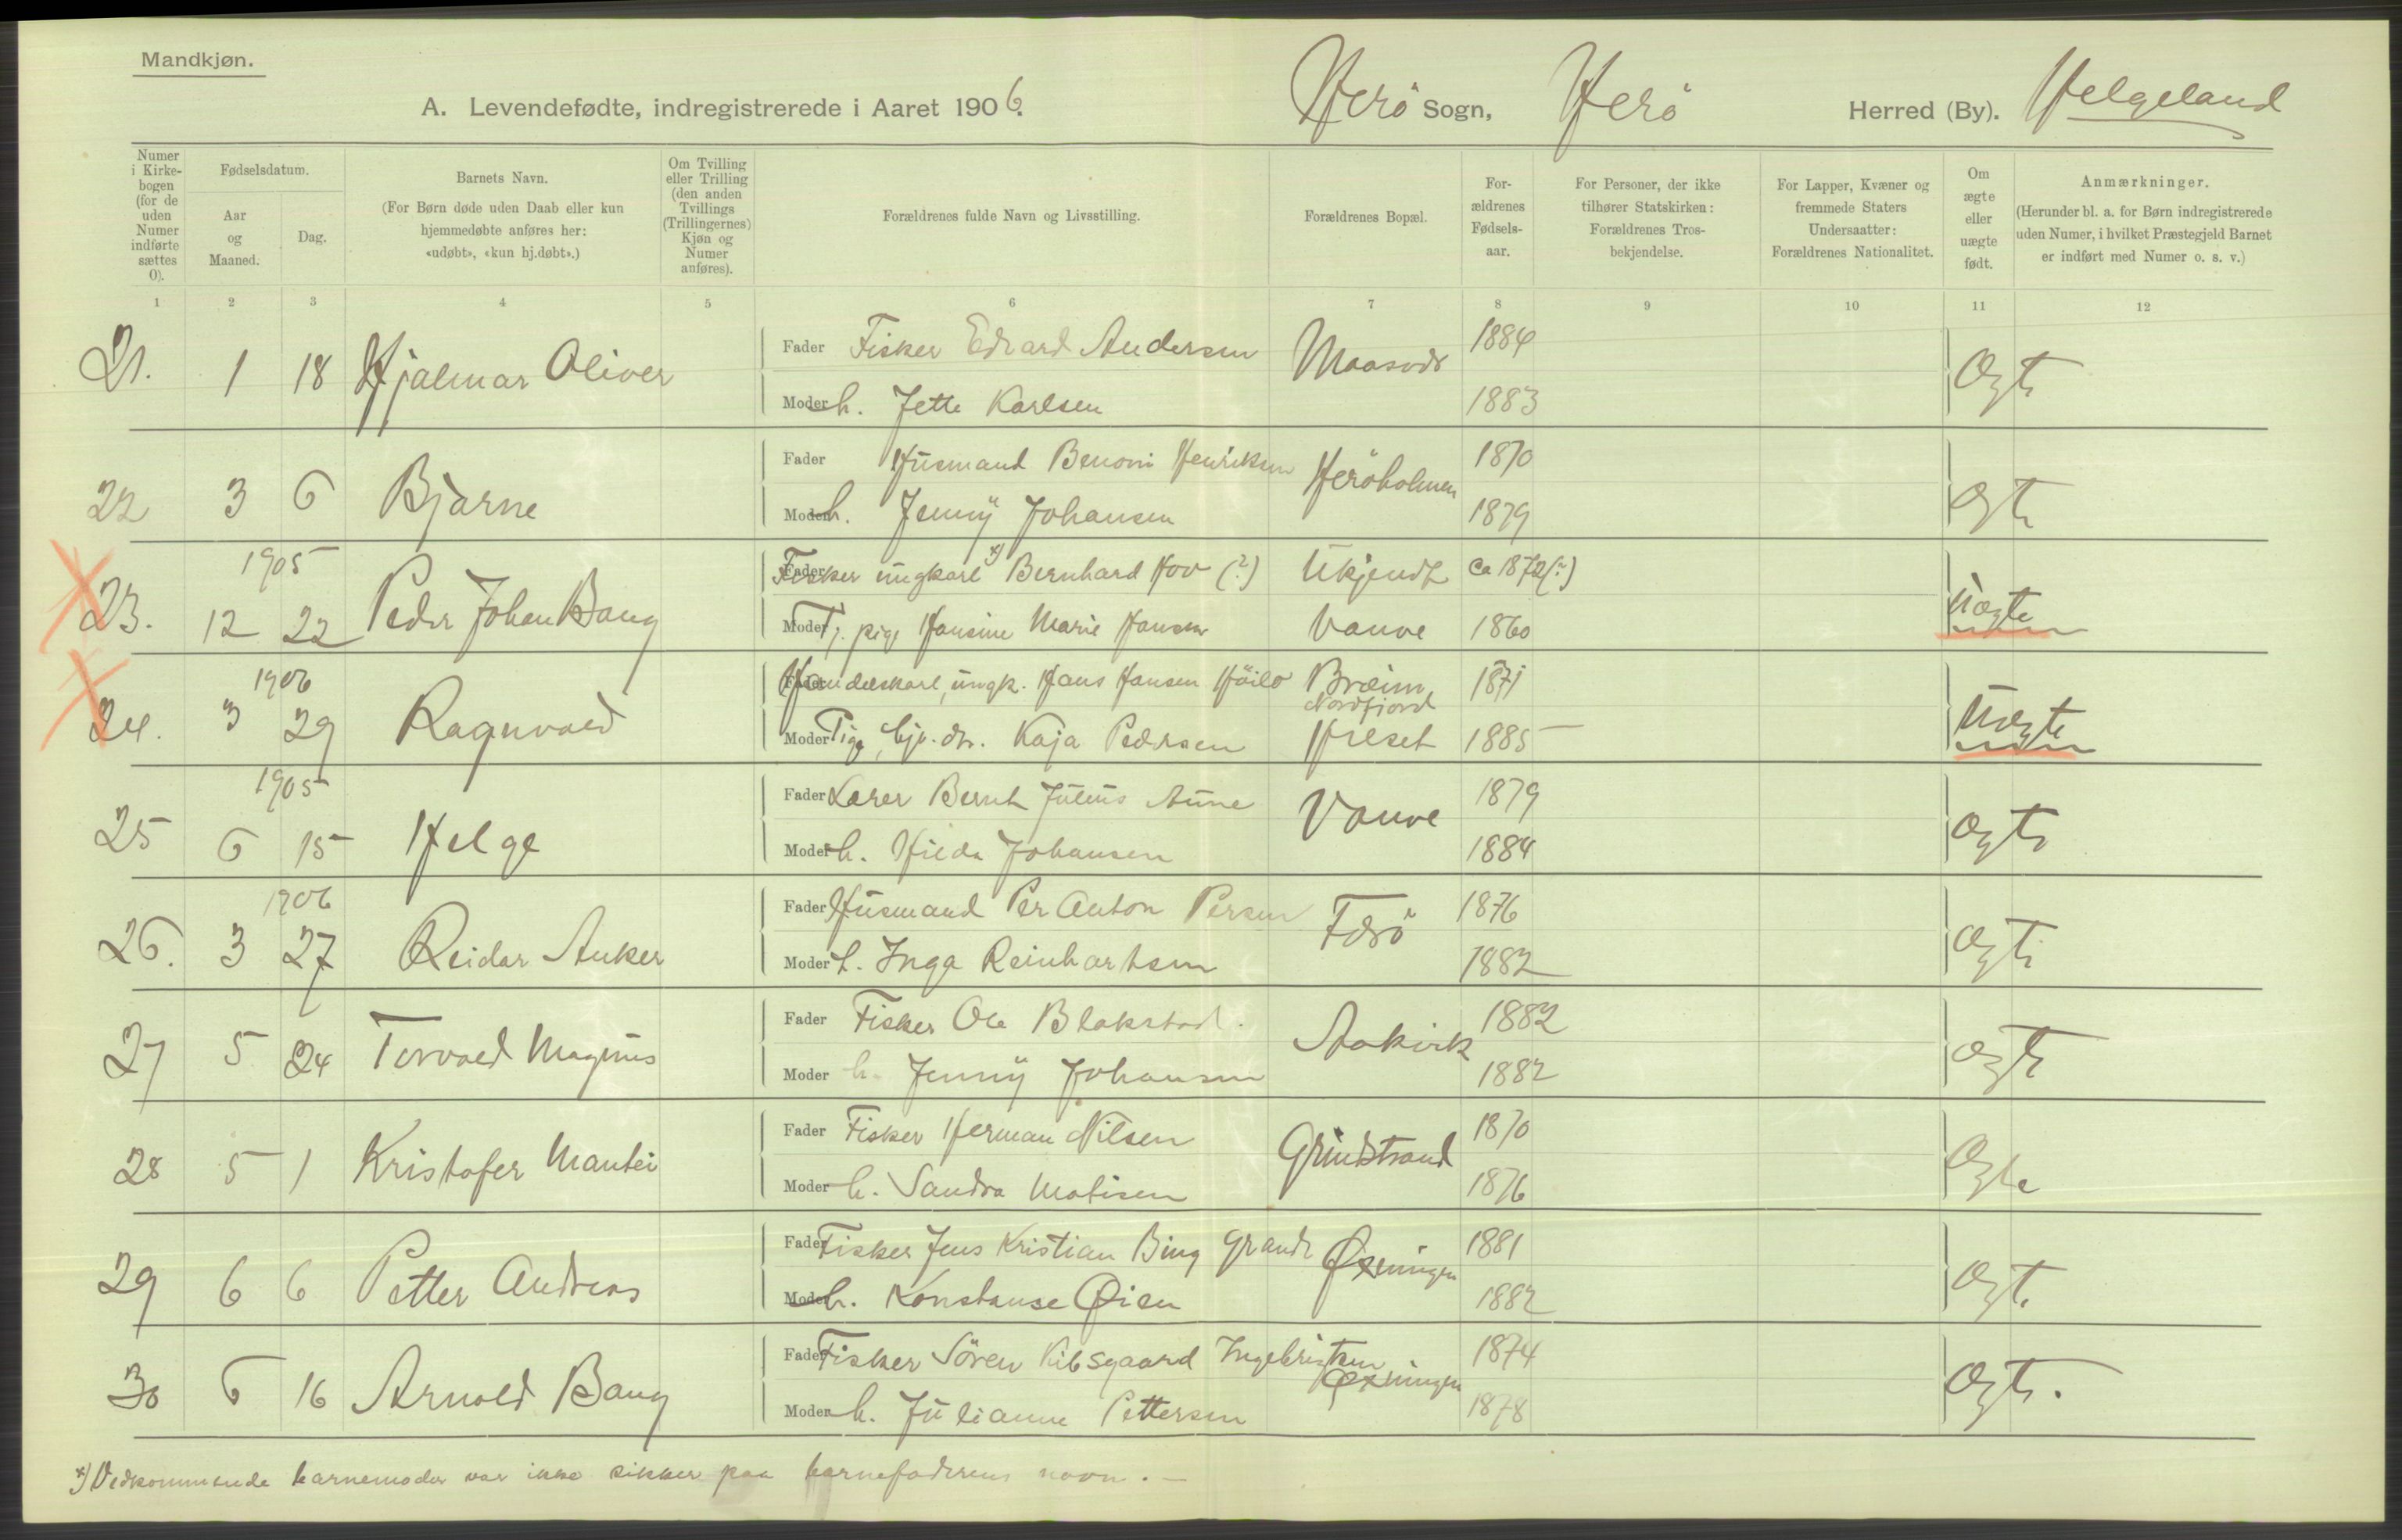 Mandkjøn.
A. Levendefødte, indregistrerede i Aaret 1906. Herö Sogn, Herö Herred (By). Helgeland
Numer i Kirkebogen (for de uden Numer indførte sættes 0).
Fødselsdatum.
Aar og Maaned.
Dag.
Barnets Navn.
(For Børn døde uden Daab eller kun hjemmedøbte anføres her: «udøbt», «kun hj.døbt».)
Om Tvilling eller Trilling (den anden Tvillings (Trillingernes) Kjøn og Numer anføres).
Forældrenes fulde Navn og Livsstilling.
Forældrenes Bopæl.
Forældrenes Fødselsaar.
For Personer, der ikke tilhører Statskirken: Forældrenes Trosbekjendelse.
For Lapper, Kvæner og fremmede Staters Undersaatter: Forældrenes Nationalitet.
Om ægte eller uægte født.
Anmærkninger.
(Herunder bl. a. for Børn indregistrerede uden Numer, i hvilket Præstegjeld Barnet er indført med Numer o. s. v.)
1 2 3 4 5 6 7 8 9 10 11 12
21. 1 18 Hjalmar Oliver Fader Fisker Edvard Andersen Maasvær 1884 Ægte
Moder h. Jette Karlsen 1883
22 3 6 Bjarne Fader Husmand Benoni Henriksen Heröholmen 1870 Ægte
Moder h. Jenny Johansen 1879
1905
23. 12 22 Peder Johan Bang Fader Fisker ungkarl x) Bernhard Hov (?) Ukjendt ca 1872(?) Uægte
Moder Tj. pige Hansine Marie Hansen Vauve 1860
1906
24. 3 29 Ragnvald Fader Handelskarl, ungk. Hans Hansen Höilo Breim, Nordfjord 1871 Uægte
Moder Pige, Gjr. dr. Kaja Pedersen Hilset 1885
1905
25 6 15 Helge Fader Lærer Bernt Julius Aune Vauve 1879 Ægte
Moder h. Hilda Johansen 1884
1906
26. 3 27 Reidar Anker Fader Husmand Per Anton Persen Færö 1876 Ægte
Moder h. Inga Reinhartsen 1882
27 5 24 Torvald Magnus Fader Fisker Ole Blakstad. Aakvik 1882 Ægte
Moder h. Jenny Johansen 1882
28 5 1 Kristofer Mantei Fader Fisker Herman Nilsen Grindstrand 1870 Ægte
Moder h. Sandra Matisen 1876
29 6 6 Petter Andreas Fader Fisker Jens Kristian Bing Grande Øxningen 1881 Ægte
Moder h. Konstanse Øien 1882
30 6 16 Arnold Bang Fader Fisker Sören Kibsgaard Ingebrigtsen Øxningen 1874 Ægte.
Moder h. Julianne Pettersen 1878
x) Vedkommende barnemoder var ikke sikker paa barnefaderens navn. –